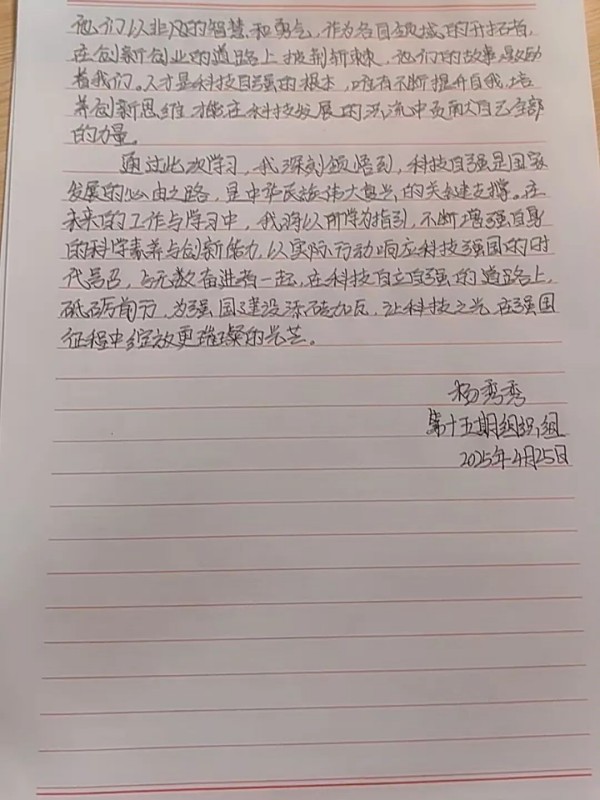 他们以非凡的智慧和勇气，作为各自领域的开拓者，
在创新创业的道路上披荆斩棘，他们的故事激励
着我们。人才是科技自强的根本，唯有不断提升自我，培
养创新思维，才能在科技发展的洪流中贡献自己全部
的力量。
通过此次学习，我深刻领悟到，科技自强是国家
发展的必由之路，是中华民族伟大复兴的关键支撑。在
未来的工作与学习中，我将以所学为指引，不断增强自身
的科学素养与创新能力，以实际行动响应科技强国的时
代号召，与无数奋进者一起，在科技自立自强的道路上，
砥砺前行，为强国建设添砖加瓦，让科技之光在强国
征程中绽放更璀璨的光芒。
杨秀秀
第十五期组织组
2025年4月25日